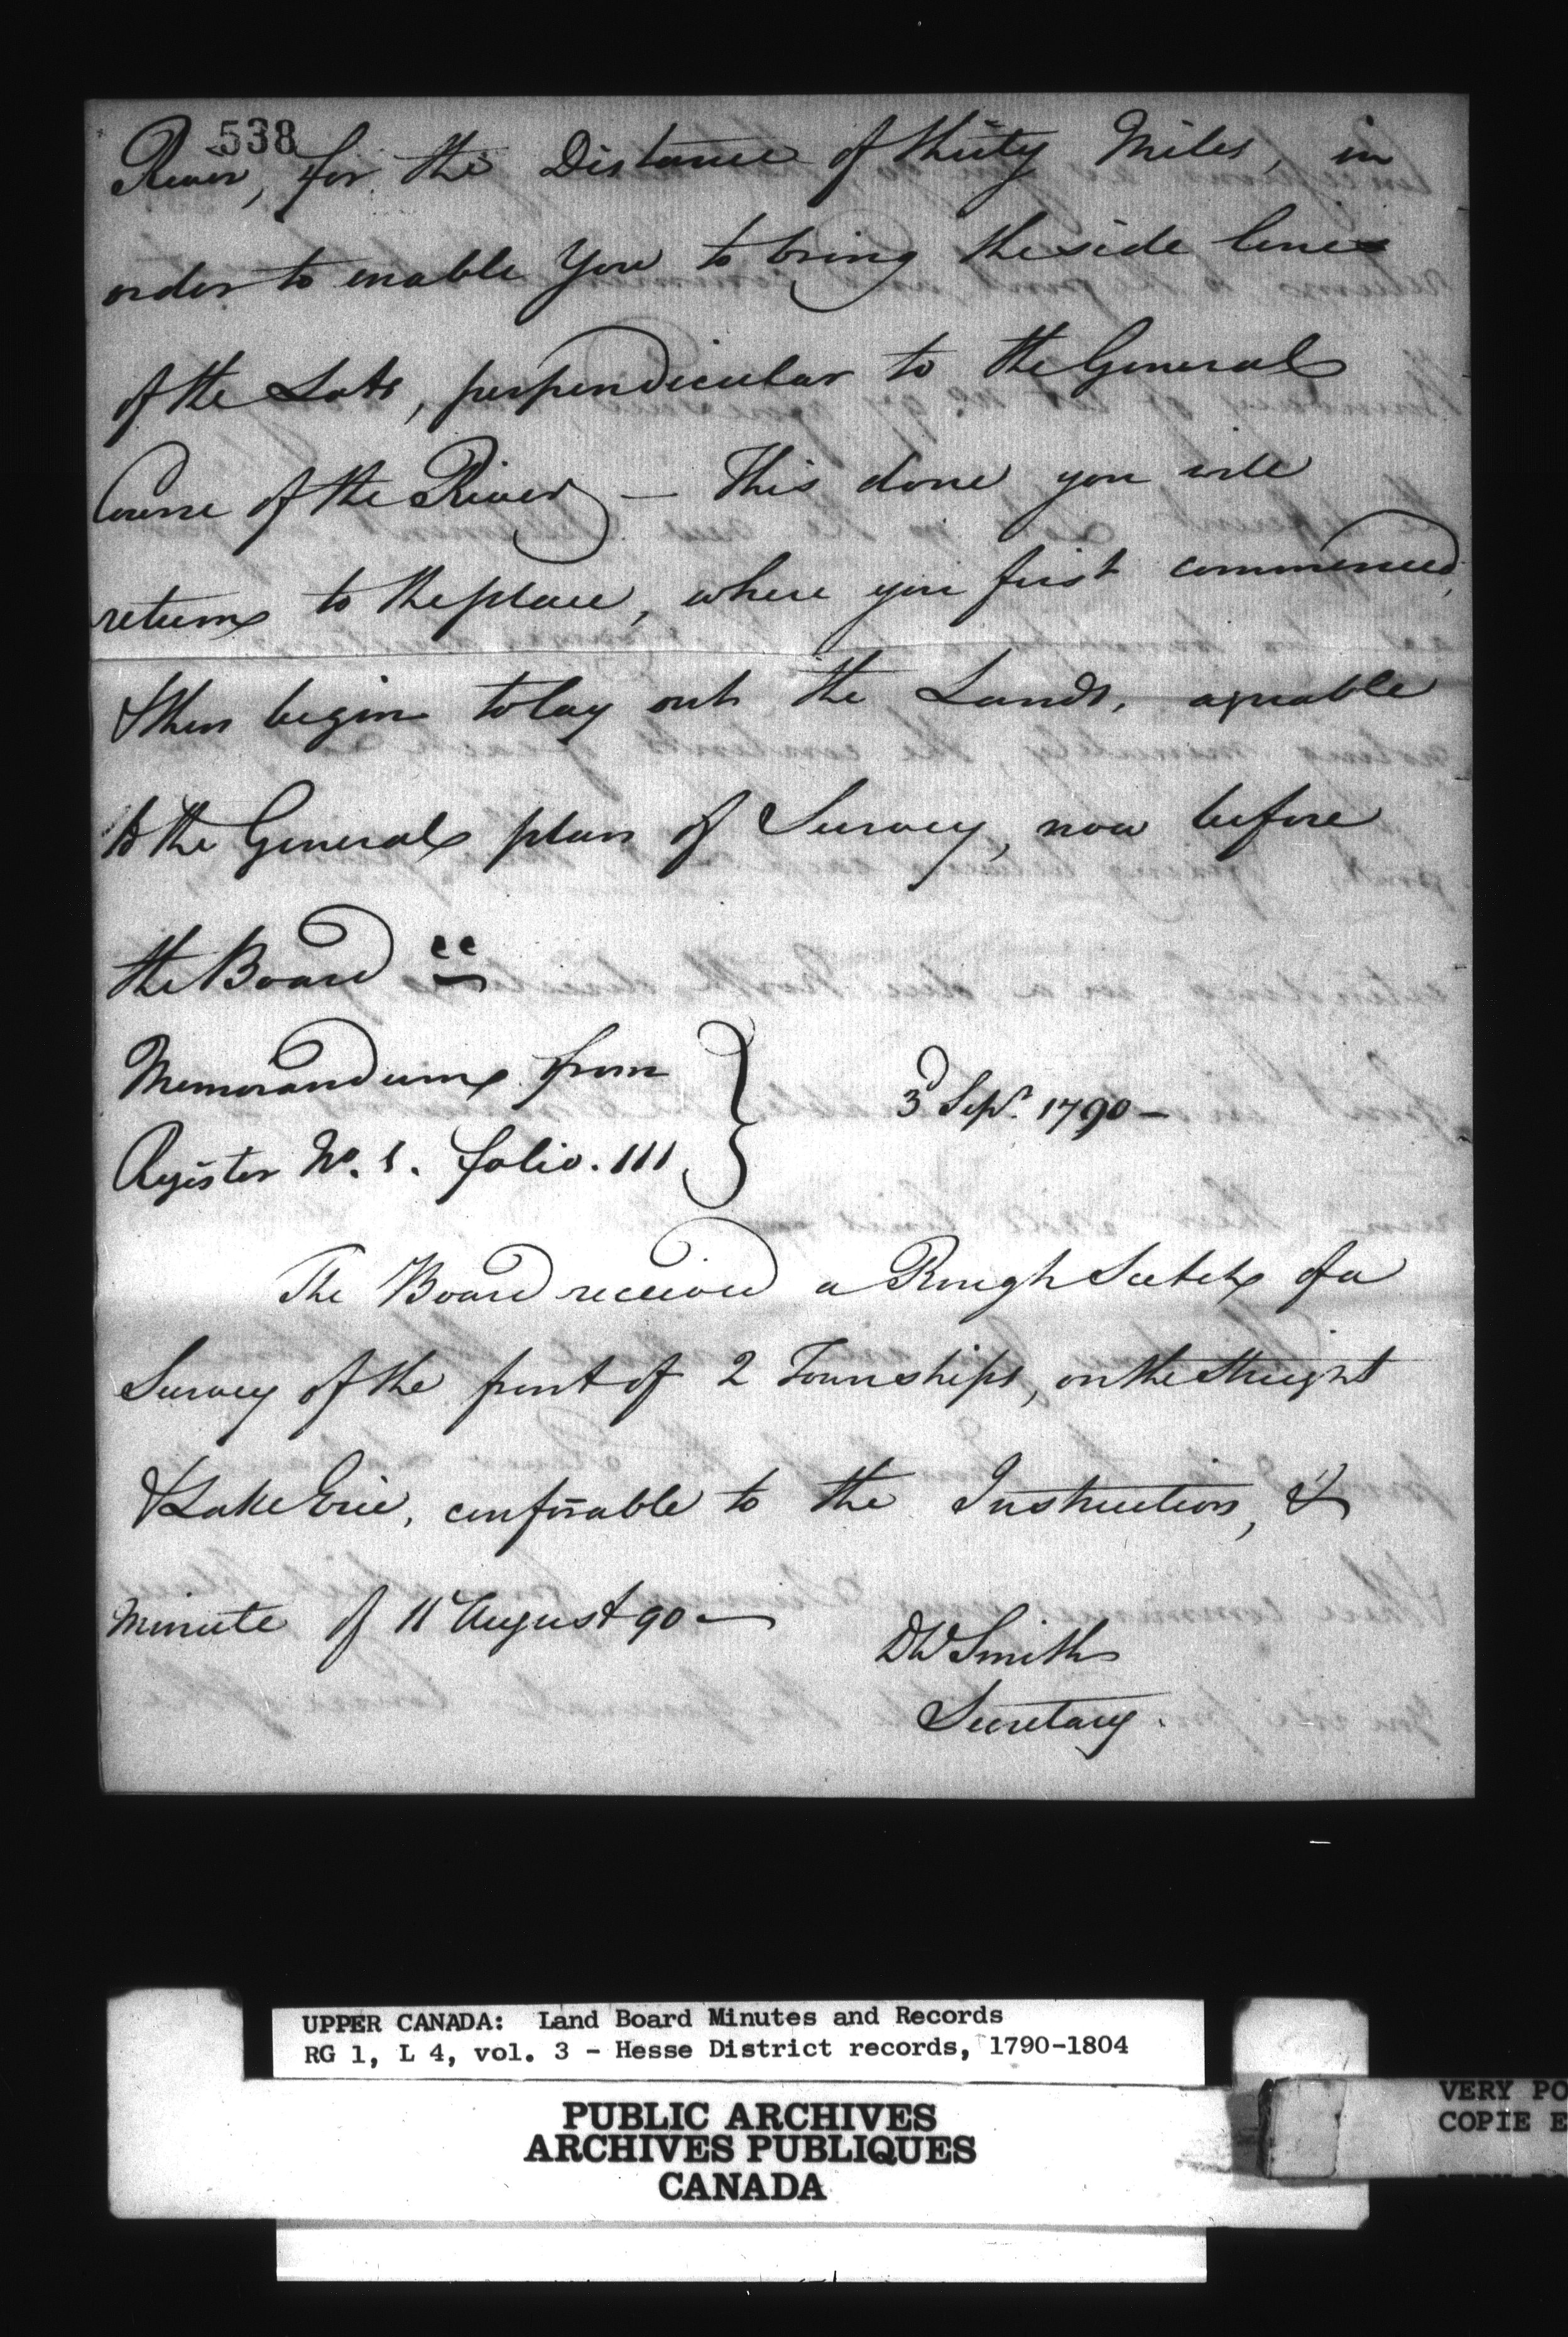 538
River, for the Distance of thirty Miles, in
order to enable You to bring the side lines
of the Lots, perpendicular to the General
Course of the River — This done you will
return to the place, where you first commenced,
& then begin to lay out the Lands, agreable
to the General plan of Survey, now before
the Board "
Memorandum from
Register No. 1. folio. 111
3d Sepr. 1790 —
The Board received a Rough Scetch of a
Survey of the front of 2 Townships, on the Streight
& Lake Erie, conformable to the Instruction, &
Minute of 11 August 90 —
DW Smith
Secretary.
UPPER CANADA: Land Board Minutes and Records
RG 1, L 4, vol. 3 - Hesse District records, 1790-1804
PUBLIC ARCHIVES
ARCHIVES PUBLIQUES
CANADA
VERY PO
COPIE E